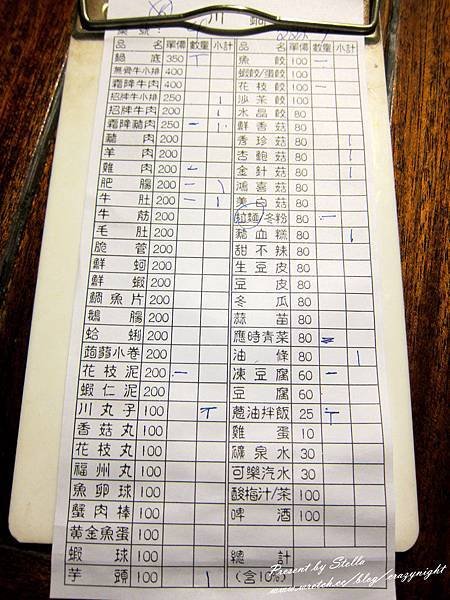 川
品 名 單價 數量 小計
鍋 底 350 T
無骨牛小排 400
霜降牛肉 400
招牌牛小排 250
招牌牛肉 200
霜降豬肉 250 一
豬 肉 200
羊 肉 200
雞 肉 200 一
肥 腸 200 一
牛 肚 200 一
牛 筋 200
毛 肚 200
脆 管 200
鮮 蚵 200
鮮 蝦 200
鯛魚片 200
鵝 腸 200
蛤 蜊 200
蒟蒻小卷 200
花枝泥 200 一
蝦仁泥 200
川丸子 100 T
香菇丸 100
花枝丸 100
福州丸 100
魚卵球 100
蟹肉棒 100
黃金魚蛋 100
蝦 球 100
芋 頭 100
品 名 單價 數量 小計
魚 餃 100 一
蝦餃/蛋餃 100
花枝餃 100 一
沙茶餃 100
水晶餃 80
鮮香菇 80
秀珍菇 80
杏鮑菇 80
金針菇 80
鴻喜菇 80
美白菇 80
拉麵/冬粉 80 一
豬血糕 80
甜不辣 80
生豆皮 80
豆 皮 80
冬 瓜 80
蒜 苗 80
應時青菜 80
油 條 80
凍豆腐 60 一
豆 腐 60
蔥油拌飯 25 T
雞 蛋 10
礦泉水 30
可樂汽水 30
酸梅汁/茶 100
啤 酒 100
總 計
(含10%)
Present by Stella
www.wretch.cc/blog/crazynight